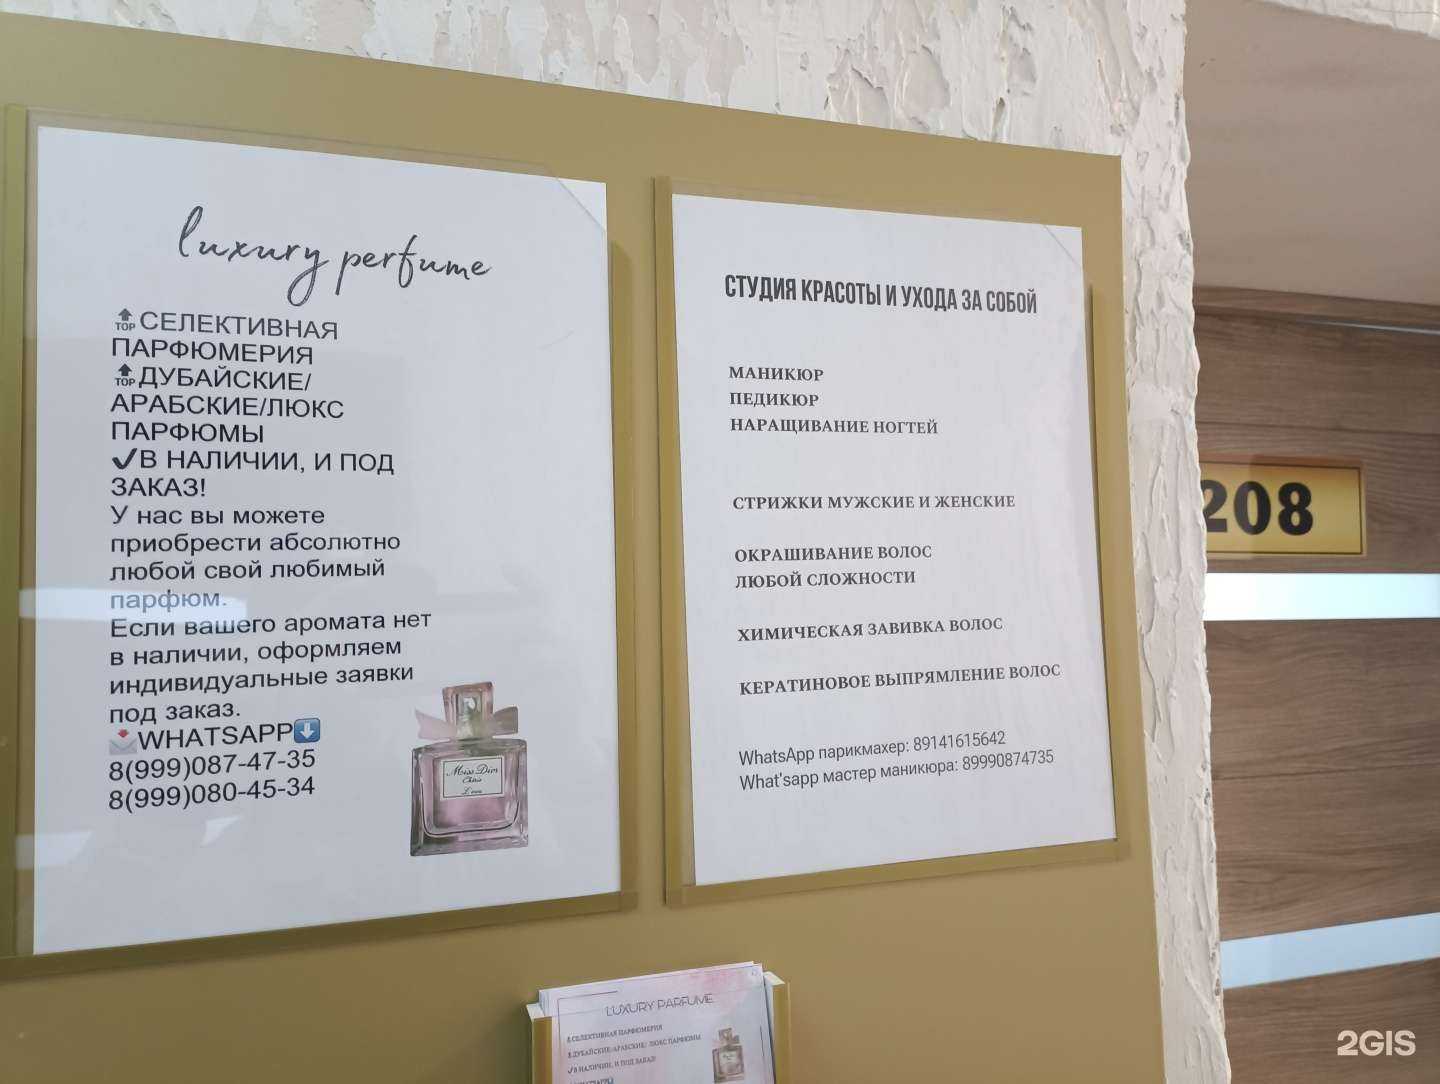 luxury perfume
🔝СЕЛЕКТИВНАЯ
ПАРФЮМЕРИЯ
🔝ДУБАЙСКИЕ/
АРАБСКИЕ/ЛЮКС
ПАРФЮМЫ
✔В НАЛИЧИИ, И ПОД
ЗАКАЗ!
У нас вы можете
приобрести абсолютно
любой свой любимый
парфюм.
Если вашего аромата нет
в наличии, оформляем
индивидуальные заявки
под заказ.
📩WHATSAPP⬇
8(999)087-47-35
8(999)080-45-34
Miss Dior
Chérie
L'eau
СТУДИЯ КРАСОТЫ И УХОДА ЗА СОБОЙ
МАНИКЮР
ПЕДИКЮР
НАРАЩИВАНИЕ НОГТЕЙ
СТРИЖКИ МУЖСКИЕ И ЖЕНСКИЕ
ОКРАШИВАНИЕ ВОЛОС
ЛЮБОЙ СЛОЖНОСТИ
ХИМИЧЕСКАЯ ЗАВИВКА ВОЛОС
КЕРАТИНОВОЕ ВЫПРЯМЛЕНИЕ ВОЛОС
WhatsApp парикмахер: 89141615642
What'sapp мастер маникюра: 89990874735
208
LUXURY PARFUME
СЕЛЕКТИВНАЯ ПАРФЮМЕРИЯ
ДУБАЙСКИЕ/АРАБСКИЕ/ ЛЮКС ПАРФЮМЫ
✓В НАЛИЧИИ, И ПОД ЗАКАЗ!
2GIS